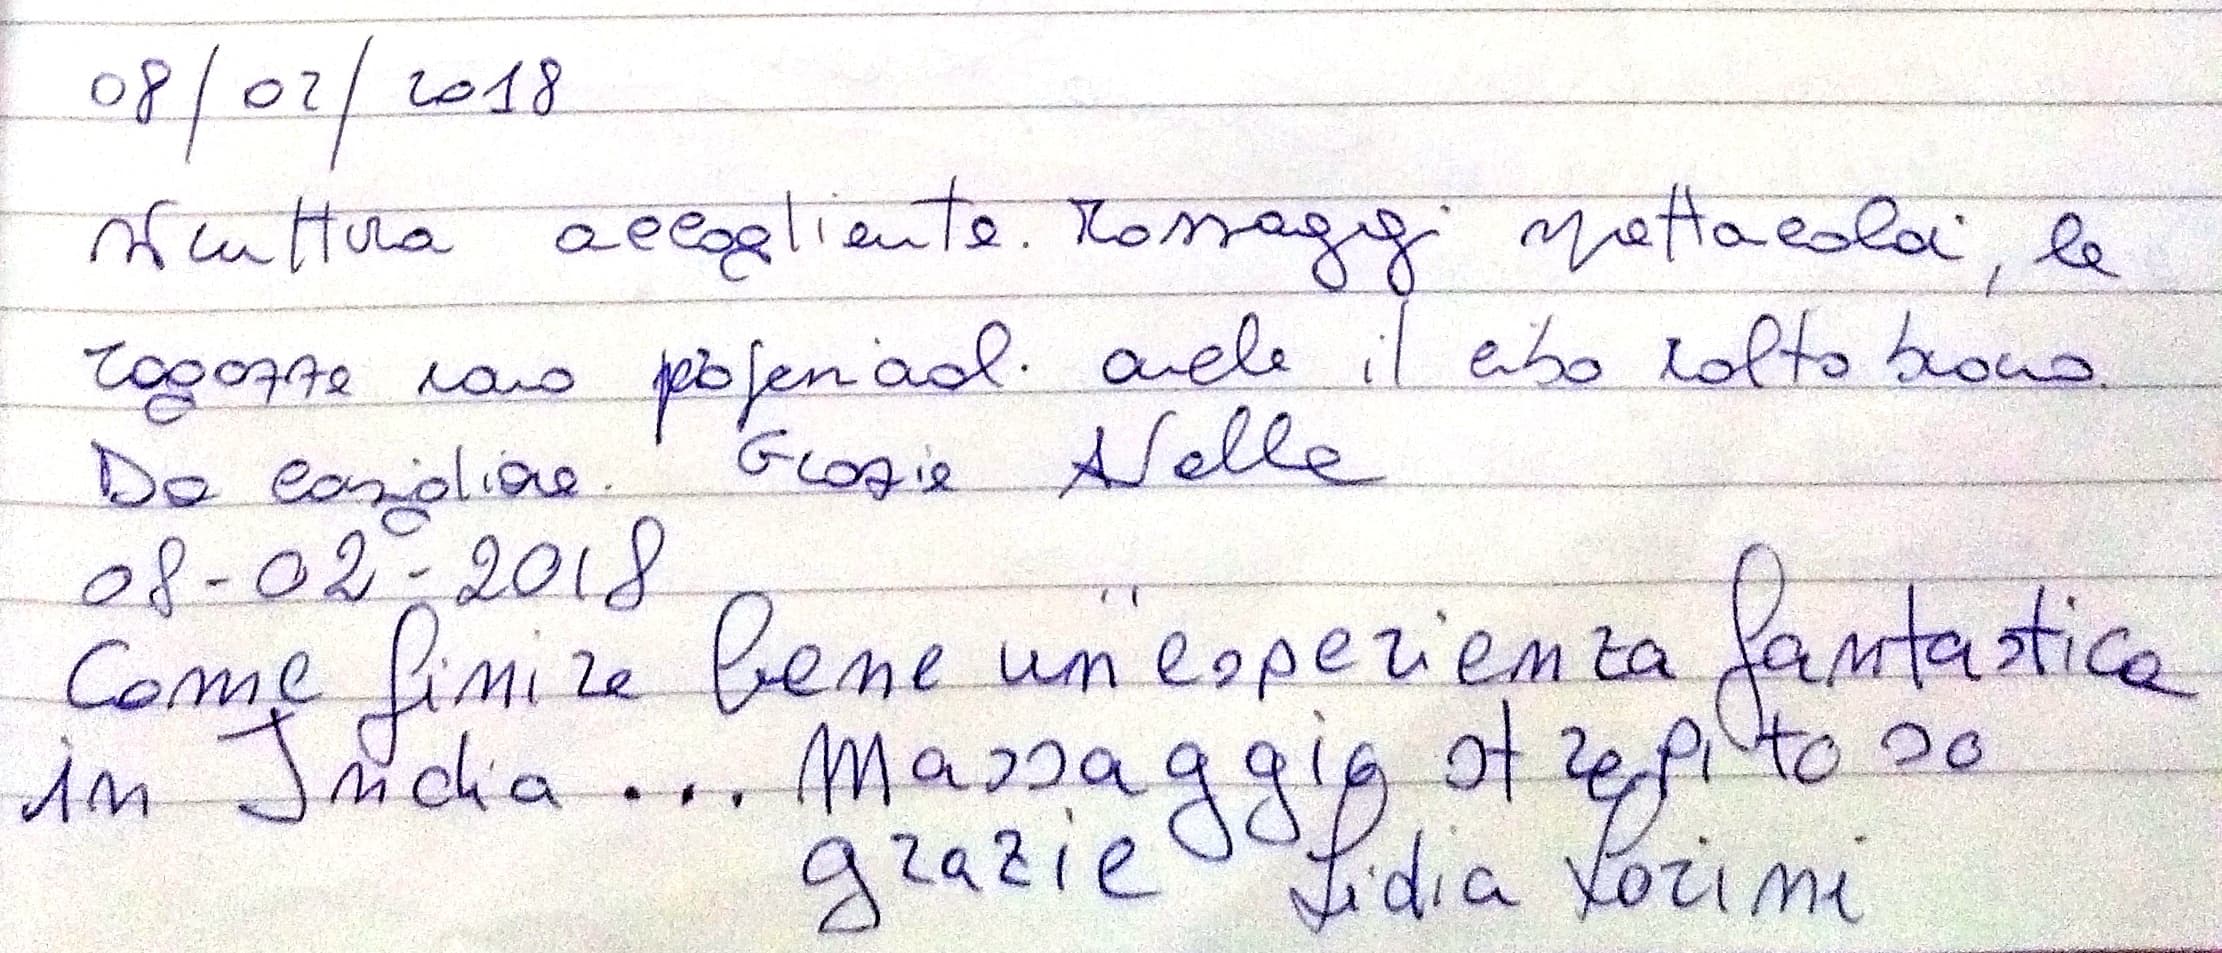 08/02/2018
Struttura accogliente. Massaggi spettacolari, le
ragazze sono professionali. anche il cibo molto buono.
Da consigliare. Grazie
08-02-2018
Come finire bene un'esperienza fantastica
in India... Massaggio strepitoso
grazie Lidia Lorini